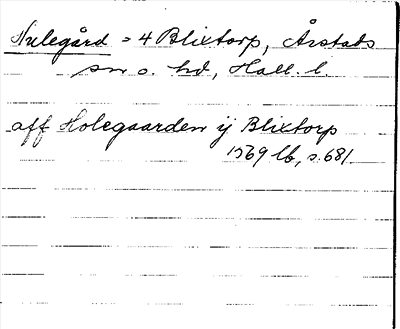 Hulegård = 4 Blixtorp, Årstads
sn o. hd, Hall. l.
aff Holegaarden ij Blixtorp
1569 lb, s. 681.